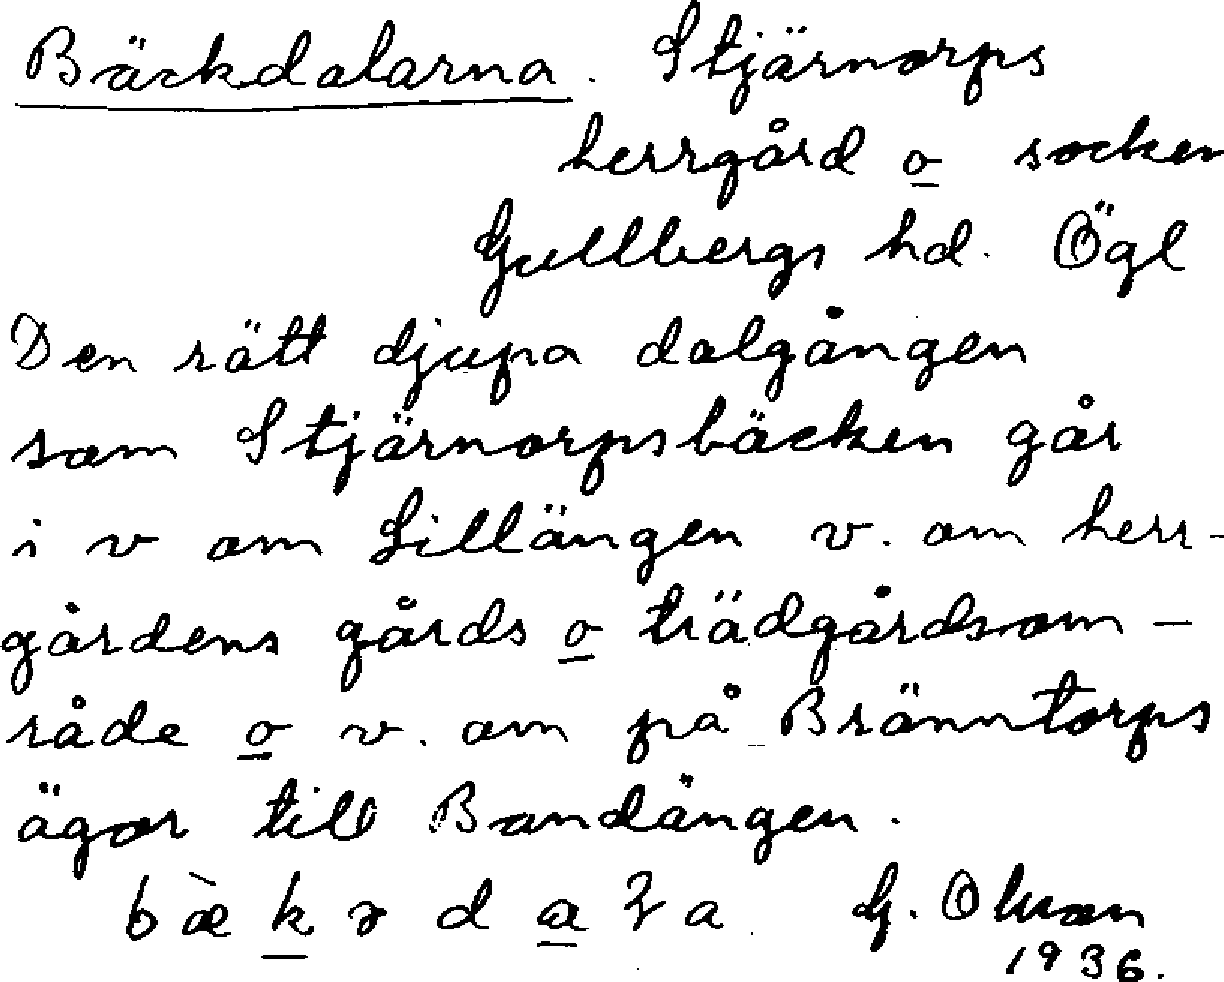 Bäckdalarna. Stjärnorps
herrgård o socken
Gullbergs hd. Ögl
Den rätt djupa dalgången
som Stjärnorpsbäcken går
i v om Lillängen v. om herr-
gårdens gårds o trädgårdsom-
råde o v. om på Bränntorps
ägor till Bandängen.
G. Olson
1936.